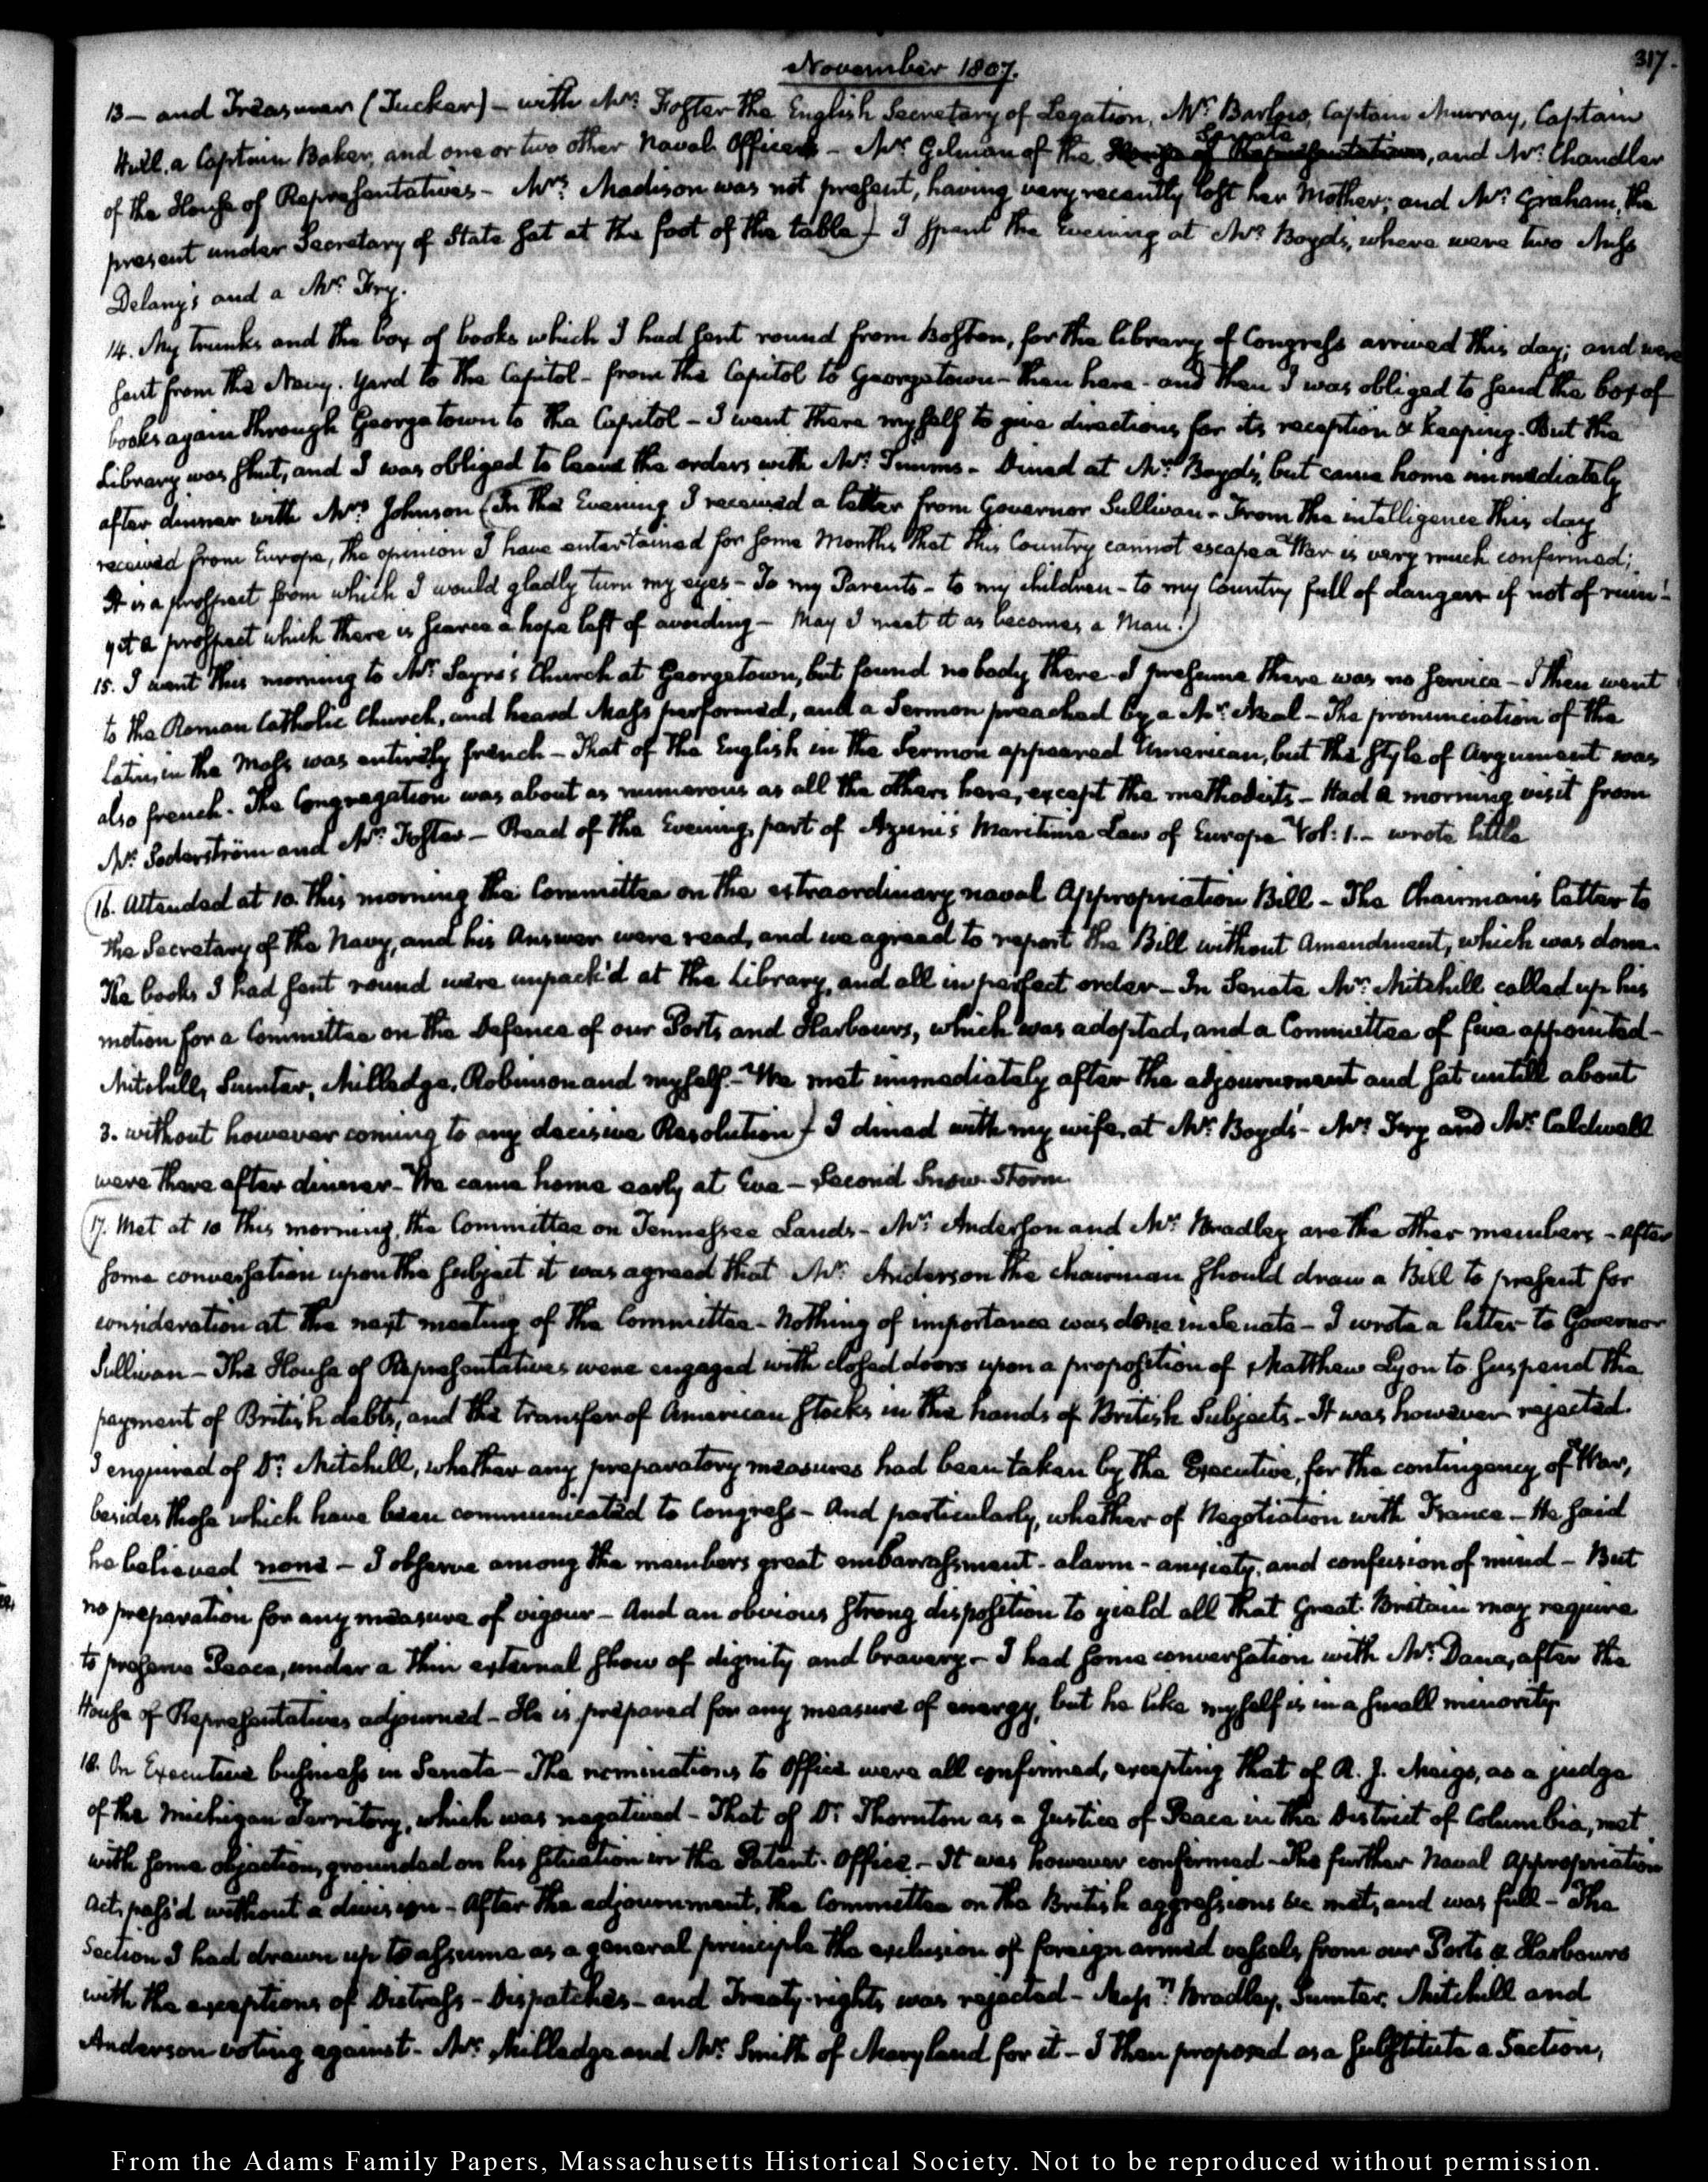 November 1807.
317.
13 — and Treasurer (Tucker) — with Mr. Foster the English Secretary of Legation, Mr. Barlow, Captain Murray, Captain
Hull, a Captain Baker, and one or two other Naval Officers — Mr. Gilman of the House of Representatives Senate, and Mr. Chandler
of the House of Representatives — Mrs. Madison was not present, having very recently lost her Mother; and Mr. Graham, the
present under Secretary of State sat at the foot of the table) I spent the Evening at Mr. Boyd's, where were two Miss
Delany's and a Mr. Fry.
14. My trunks and the box of books which I had sent round from Boston, for the library of Congress arrived this day; and were
sent from the Navy-Yard to the Capitol — from the Capitol to Georgetown — then here — and then I was obliged to send the box of
books again through Georgetown to the Capitol — I went there myself to give directions for its reception & keeping. But the
Library was shut, and I was obliged to leave the orders with Mr. Timms — Dined at Mr. Boyd's, but came home immediately
after dinner with Mrs. Johnson (In the Evening I received a letter from Governor Sullivan — From the intelligence this day
received from Europe, the opinion I have entertained for some Months that this Country cannot escape a War is very much confirmed;
It is a prospect from which I would gladly turn my eyes — To my Parents — to my children — to my Country full of danger if not of ruin —
yet a prospect which there is scarce a hope left of avoiding — May I meet it as becomes a Man!)
15. I went this morning to Mr. Sayrs's Church at Georgetown, but found nobody there — I presume there was no service — I then went
to the Roman Catholic Church, and heard Mass performed, and a Sermon preached by a Mr. Neal — The pronunciation of the
latin, in the Mass was entirely french — That of the English in the Sermon appeared American, but the style of Argument was
also french. The Congregation was about as numerous as all the others here, except the methodists — Had a morning visit from
Mr. Soderström and Mr. Foster — Read of the Evening, part of Azuni's Maritime Law of Europe Vol: 1. — wrote little
(16. Attended at 10. this morning the Committee on the extraordinary naval Appropriation Bill — The Chairman's letter to
the Secretary of the Navy, and his Answer were read, and we agreed to report the Bill without Amendment, which was done.
The books I had sent round were unpack'd at the Library, and all in perfect order — In Senate Mr. Mitchill called up his
motion for a Committee on the Defence of our Ports and Harbours, which was adopted, and a Committee of five appointed —
Mitchill, Sumter, Milledge, Robinson and myself — We met immediately after the adjournment and sat untill about
3. without however coming to any decisive Resolution) I dined with my wife, at Mr. Boyd's — Mr. Fry and Mr. Caldwell
were there after dinner — We came home early at Eve — Second Snow-Storm.
(17. Met at 10 this morning, the Committee on Tennessee Lands — Mr. Anderson and Mr. Bradley are the other members — After
some conversation upon the subject it was agreed that Mr. Anderson the chairman should draw a Bill to present for
consideration at the next meeting of the Committee — Nothing of importance was done in Senate — I wrote a letter to Governor
Sullivan — The House of Representatives were engaged with closed doors upon a proposition of Matthew Lyon to suspend the
payment of British debts, and the transfer of American Stocks in the hands of British Subjects — It was however rejected.
I enquired of Dr. Mitchill, whether any preparatory measures had been taken by the Executive, for the contingency of War,
besides those which have been communicated to Congress — And particularly, whether of Negotiation with France — He said
he believed none — I observe among the members great embarrassment — alarm — anxiety, and confusion of mind — But
no preparation for any measure of vigour — And an obvious strong disposition to yield all that Great-Britain may require
to preserve Peace, under a thin external show of dignity and bravery — I had some conversation with Mr. Dana, after the
House of Representatives adjourned — He is prepared for any measure of energy, but he like myself is in a small minority.
18. On Executive business in Senate — The nominations to Office were all confirmed, excepting that of R. J. Meigs, as a judge
of the Michigan Territory, which was negatived — That of Dr. Thornton as a Justice of Peace in the District of Columbia, met
with some objection, grounded on his situation in the Patent-Office — It was however confirmed — The further Naval Appropriation
Act, pass'd without a division — After the adjournment, the Committee on the British aggressions &c met, and was full — The
Section I had drawn up to assume as a general principle the exclusion of foreign armed vessels from our Ports & Harbours
with the exceptions of Distress — Dispatches — and Treaty-rights, was rejected — Messrs. Bradley, Sumter, Mitchill and
Anderson voting against — Mr. Milledge and Mr. Smith of Maryland for it — I then proposed as a substitute a Section,
From the Adams Family Papers, Massachusetts Historical Society. Not to be reproduced without permission.